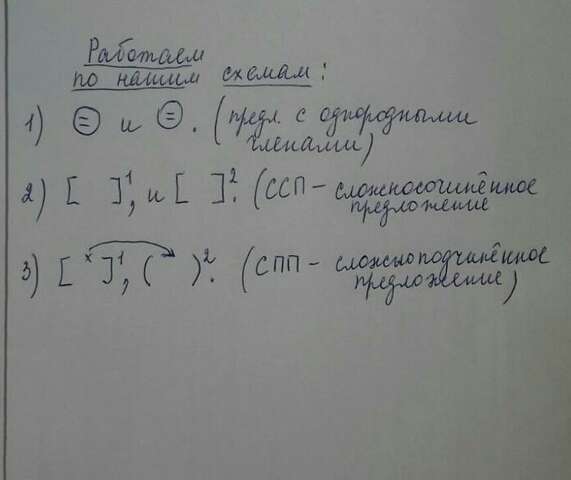 Работаем
по нашим схемам:
1) ⊜ и ⊜. (предл. с однородными
членами)
2) [ ]¹, и [ ]². (ССП – сложносочинённое
предложение
3) [ ˣ ]¹, ( )². (СПП – сложноподчинённое
предложение)